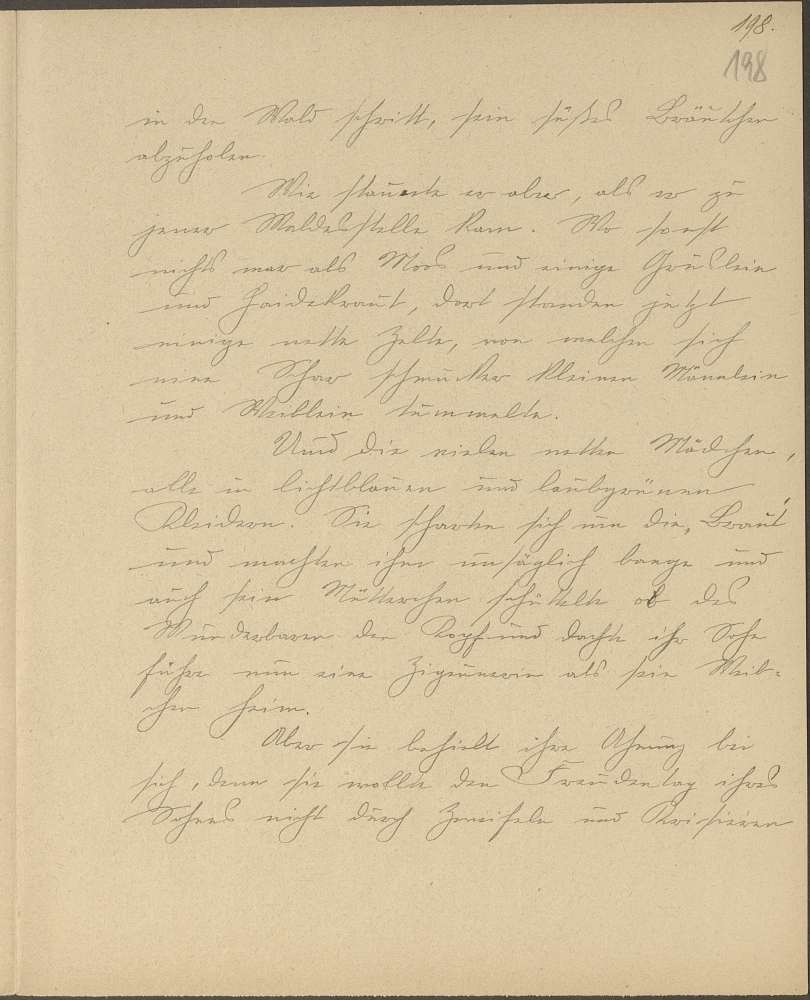 198.
198
in den Wald schritt, sein süßes Bräutchen
abzuholen.
Wie staunte er aber, als er zu
jener Waldesstelle kam. Wo sonst
nichts war als Moos und einige Gräslein
und Haidekraut, dort standen jetzt
einige nette Zelte, von welchen sich
eine Schar schmucker kleiner Männlein
und Weiblein tummelte.
Und die vielen netten Mädchen,
alle in lichtblauen und laubgrünen
Kleidern. Sie scharten sich um die Braut
und machten ihm unsäglich bange und
auch sein Mütterchen schüttelte ob des
Wunderbaren den Kopf und dachte ihr Sohn
führe nun eine Zigeunerin als sein Weib-
chen heim.
Aber sie behielt ihre Ahnung bei
sich, denn sie wollte den Freudentag ihres
Sohnes nicht durch Zweifeln und Kritisieren